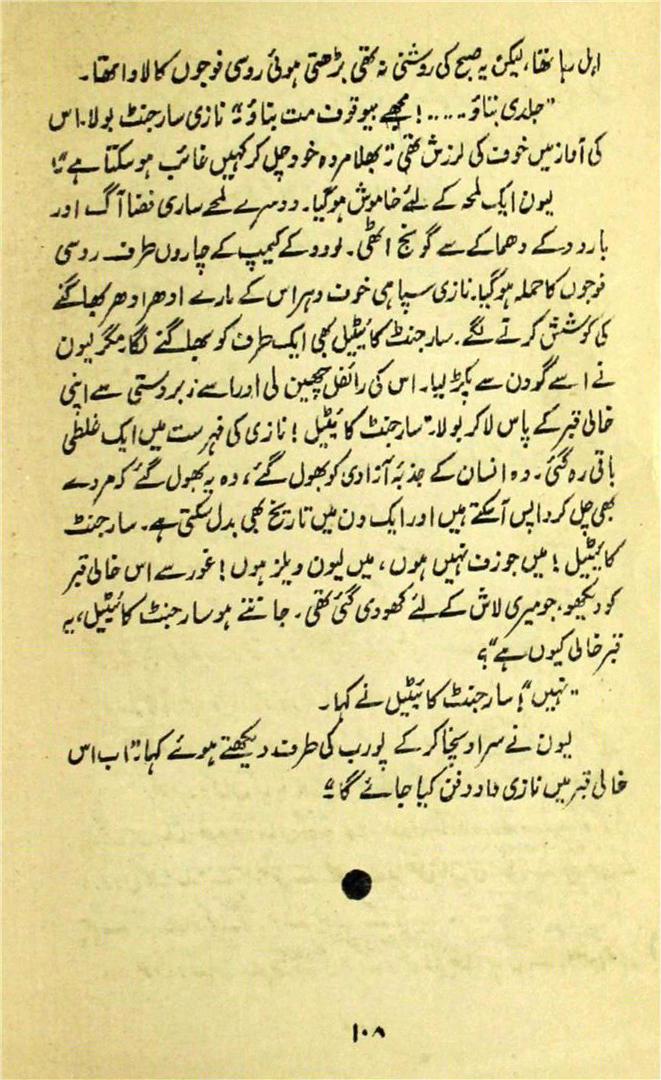 ابل رہا تھا، لیکن یہ صبح کی روشنی نہ تھی بڑھتی ہوئی روسی فوجوں کا لاوا تھا۔
"جلدی بتاؤ ....! مجھے بیوقوف مت بناؤ" نازی سارجنٹ بولا۔ اس
کی آواز میں خوف کی لرزش تھی "بھلا مردہ خود چل کر کہیں غائب ہو سکتا ہے"!
لیون ایک لمحہ کے لئے خاموش ہوگیا۔ دوسرے لمحے ساری فضا آگ اور
بارود کے دھماکے سے گونج اٹھی۔ لودو کے کیمپ کے چاروں طرف روسی
فوجوں کا حملہ ہوگیا۔ نازی سپاہی خوف وہراس کے مارے ادھر ادھر بھاگنے
کی کوشش کرتے لگے۔ سارجنٹ کائیٹیل بھی ایک طرف کو بھاگنے لگا۔ مگر لیون
نے اسے گردن سے پکڑ لیا۔ اس کی رائفل چھین لی اور اسے زبردستی سے اپنی
خالی قبر کے پاس لا کر بولا۔ "سارجنٹ کائیٹیل! نازی کی فہرست میں ایک غلطی
باقی رہ گئی۔ وہ انسان کے جذبۂ آزادی کو بھول گئے، وہ یہ بھول گئے کہ مردے
بھی چل کر واپس آسکتے ہیں اور ایک دن میں تاریخ بھی بدل سکتی ہے۔ سارجنٹ
کائیٹیل! میں جوزف نہیں ہوں، میں لیون ویلز ہوں! غور سے اس خالی قبر
کو دیکھو، جو میری لاش کے لئے کھودی گئی تھی۔ جانتے ہو سارجنٹ کائیٹیل، یہ
قبر خالی کیوں ہے"؟
"نہیں"! سارجنٹ کائیٹیل نے کہا۔
لیون نے سر اونچا کر کے پورب کی طرف دیکھتے ہوئے کہا۔ "اب اس
خالی قبر میں نازی داد دفن کیا جائے گا"
۱۰۸